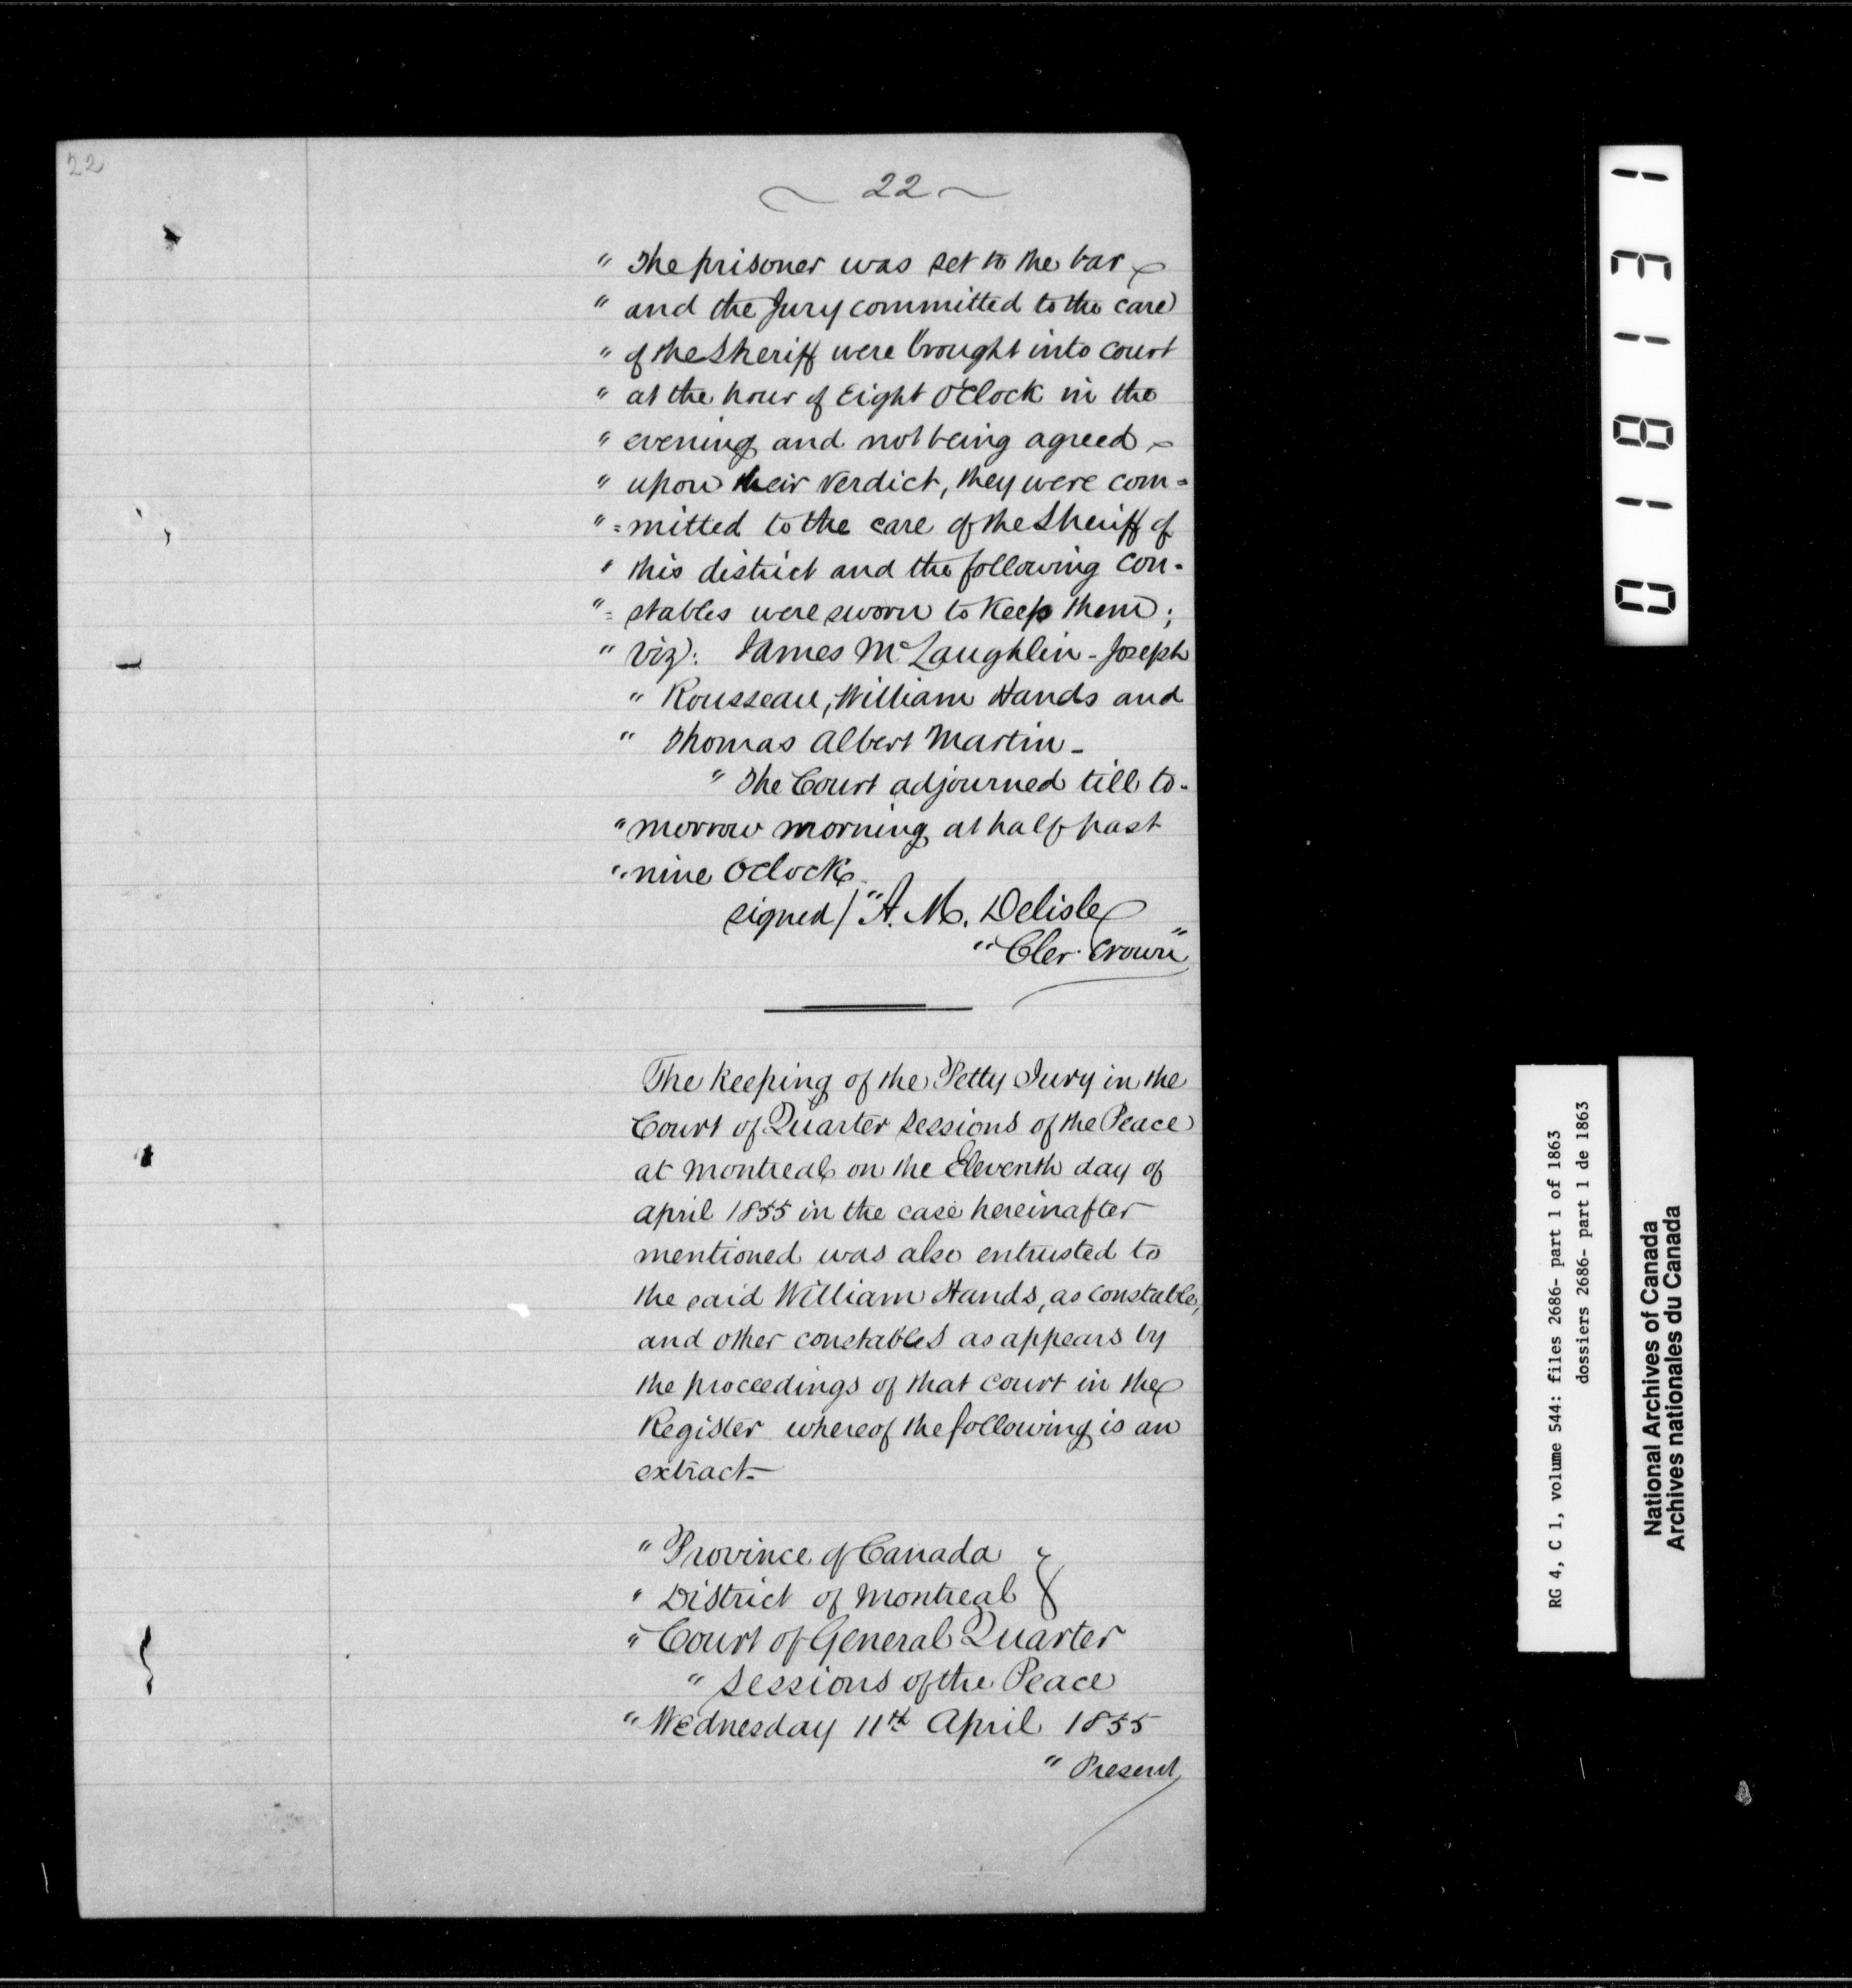 22
~ 22 ~
" The prisoner was set to the bar
" and the Jury committed to the care
" of the Sheriff were brought into court
" at the hour of Eight O'Clock in the
" evening and not being agreed
" upon their verdict, they were com=
" =mitted to the care of the Sheriff of
" this district and the following con-
" = stables were sworn to Keep them;
" viz: James McLaughlin - Joseph
" Rousseau, William Hands and
" Thomas Albert Martin -
" The Court adjourned till to-
" morrow morning at half past
" nine OClock.
signed / "A. M. Delisle
" Cler. Crown"
The keeping of the Petty Jury in the
Court of Quarter Sessions of the Peace
at Montreal on the Eleventh day of
April 1855 in the case hereinafter
mentioned was also entrusted to
the said William Hands, as constable,
and other constables as appears by
the proceedings of that Court in the
Register whereof the following is an
extract -
" Province of Canada }
" District of Montreal }
" Court of General Quarter
" Sessions of the Peace
" Wednesday 11th April 1855
" Present
0 1 8 1 3 1
RG 4, C 1, volume 544: files 2686- part 1 of 1863
dossiers 2686- part 1 de 1863
National Archives of Canada
Archives nationales du Canada